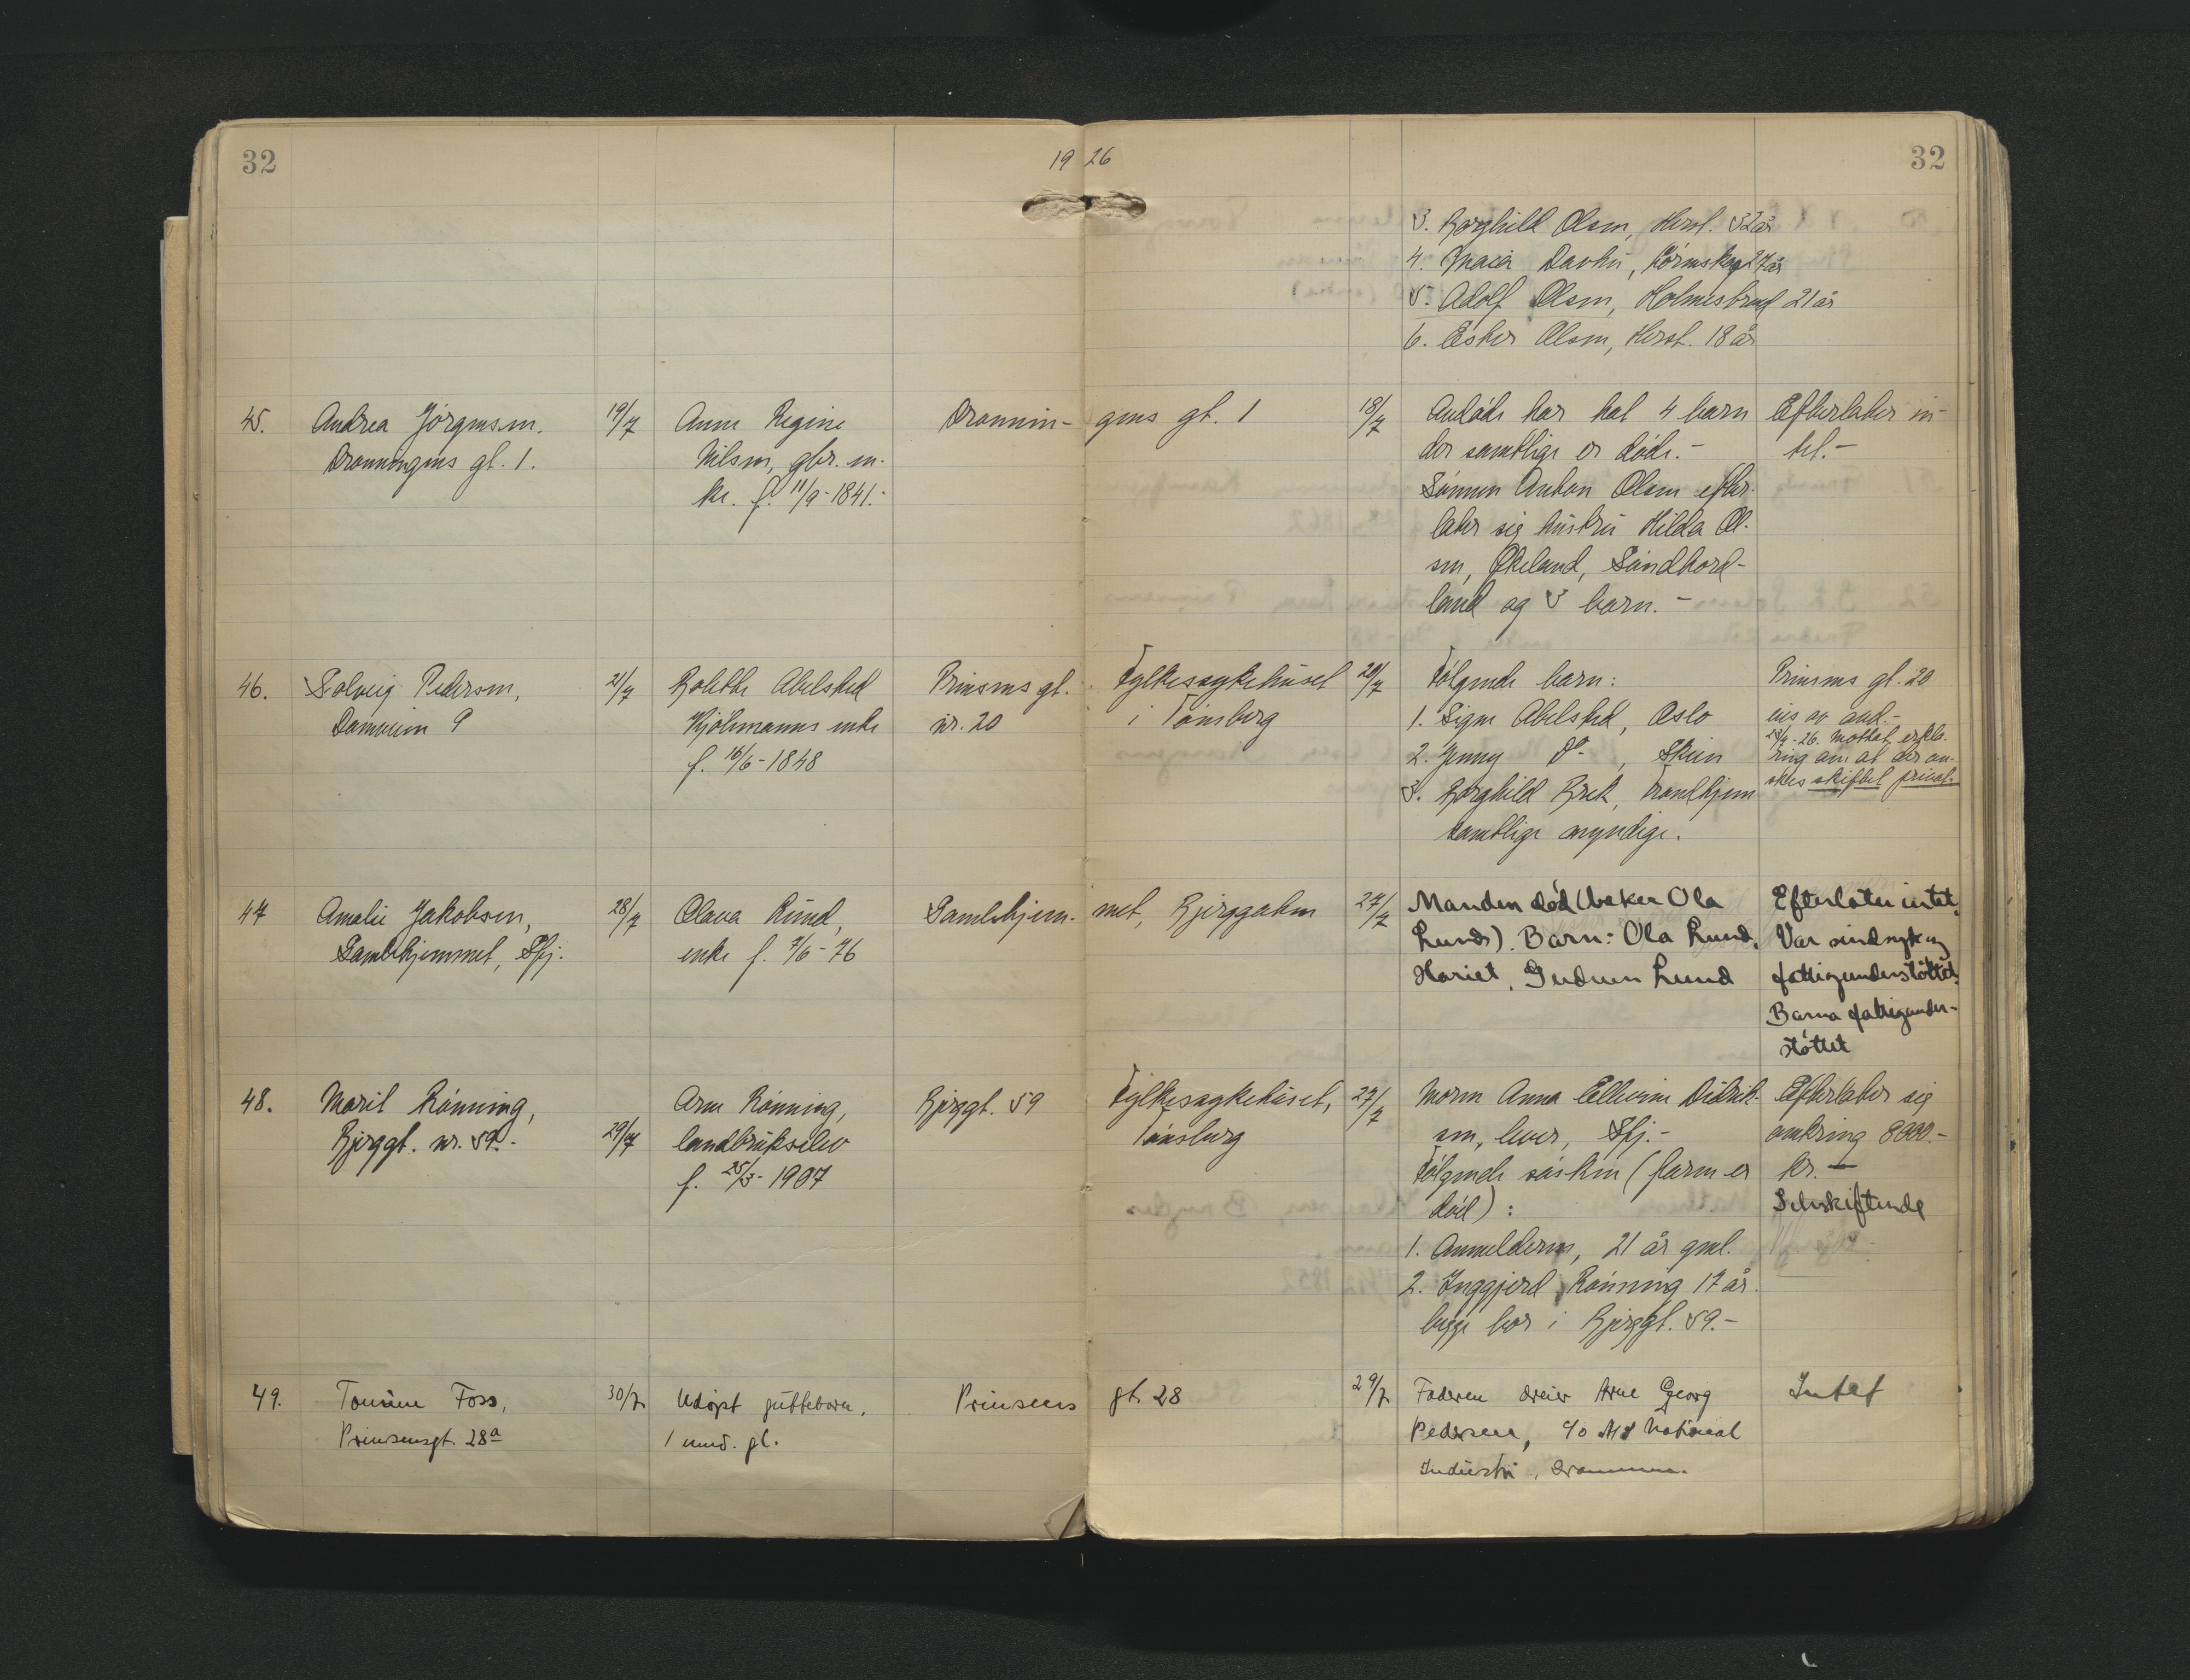 32
19 26
32
3. Borghild Olsen, Herst. 32 år
4. Maia 27 år
5. Adolf Olsen, Holmestrand 21 år
6. Ester Olsen, Herst. 18 år
45.
Andrea Jörgensen.
Dronningens gt. 1.
19/7
Anne Regine
Nilsen, gbr. en-
ke. f. 11/9-1841.-
Dronnin-
gens gt. 1
18/7
Avdöde har hat 4 barn
der samtlige er döde.-
Sönnen Anton Olsen efter-
later sig hustru Hilda Ol-
sen, Ökeland, Söndhord-
land og 3 barn.-
Efterlater in-
tet.-
46.
Solveig Pedersen,
Damveien 9
21/7
Bolette Abelsted
Kjöbmanns enke
f. 16/6-1848
Prinsens gt.
nr. 20
Fylkessykehuset
i Tönsberg
20/7
Fölgende barn:
1. Signe Abelsted, Oslo
2. Jenny do, Skien
3. Borghild Brek, Trondhjem
samtlige myndige.
Prinsens gt. 20
eies av avd.-
-26. Mottat erklæ-
ring om at der øn-
skes skiftet privat.
47
Amalie Jakobsen,
Gamlehjemmet, Sfj.
28/7
Olava Lund,
enke f. 7/6-76
Gamlehjem-
met, Bjerggaten
27/7
Manden död (baker Ola
Lund). Barn: Ola Lund,
Hariet, Gudrun Lund
Efterlater intet.
Var sindssyk og
fattigunderstöttet.
Barna fattigunder-
stöttet
48.
Marit Rönning,
Bjerggt. nr. 59.-
29/7
Arne Rönning,
landbrukselev
f. 25/3-1907
Bjerggt. 59
Fylkessykehuset,
Tönsberg
27/7
Moren Anna Ellevine Didrik-
sen, lever, Sfj.-
Fölgende söskin (faren er
död):
1. Anmelderen, 21 år gml.
2. Inggjerd Rönning 17 år.
begge bor i Bjerggt. 59.-
Efterlater sig
omkring 8000.-
kr.-
Selvskiftende
49.
Tomine Foss,
Prinsensgt. 28a
30/7
Udöpt guttebarn,
1 mnd. gl.
Prinsens
gt. 28
29/7
Faderen dreier Arne Georg
Pedersen, c/o A/S National
Industri, Drammen.
Intet